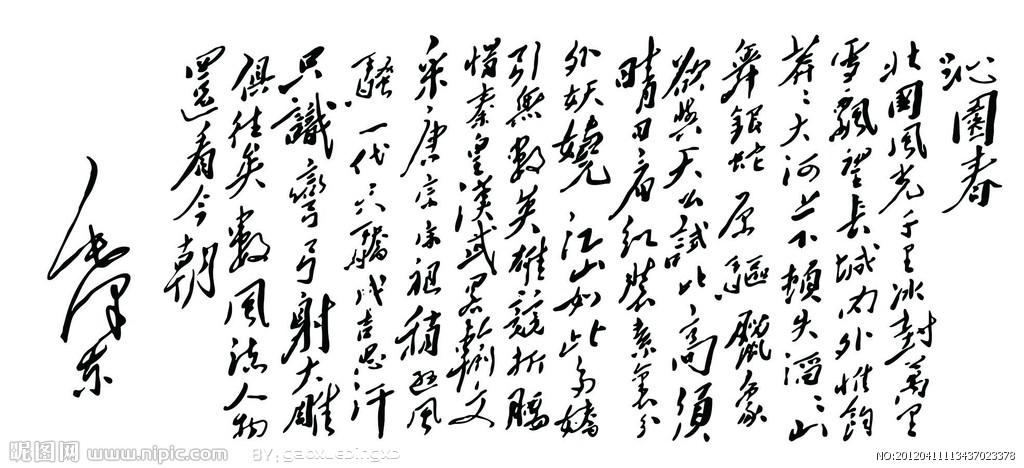 沁園春
北國風光千里冰封萬里
雪飄望長城内外惟餘
莽〻大河上下頓失滔〻山
舞銀蛇原驅臘象
欲與天公試比高須
晴日看紅裝素裹分
外妖嬈江山如此多嬌
引無數英雄競折腰
惜秦皇漢武略輸文
采唐宗宋祖稍遜風
騷一代天驕成吉思汗
只識彎弓射大雕
俱往矣數風流人物
還看今朝
毛澤東
昵图网 www.nipic.com
BY:gaoxuepingxb
NO:20120411113437023378